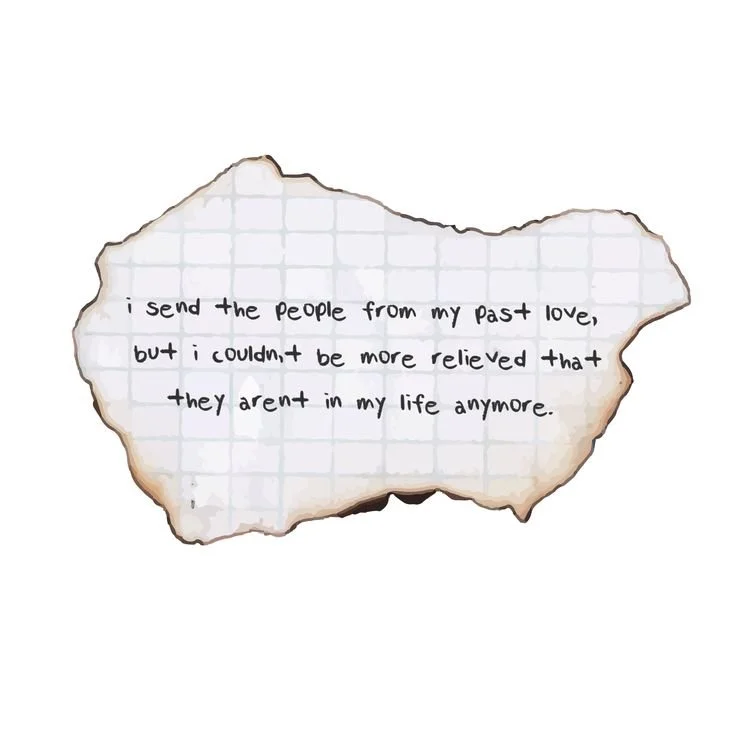 i send the people from my past love,
but i couldn,t be more relieved that
they arent in my life anymore.